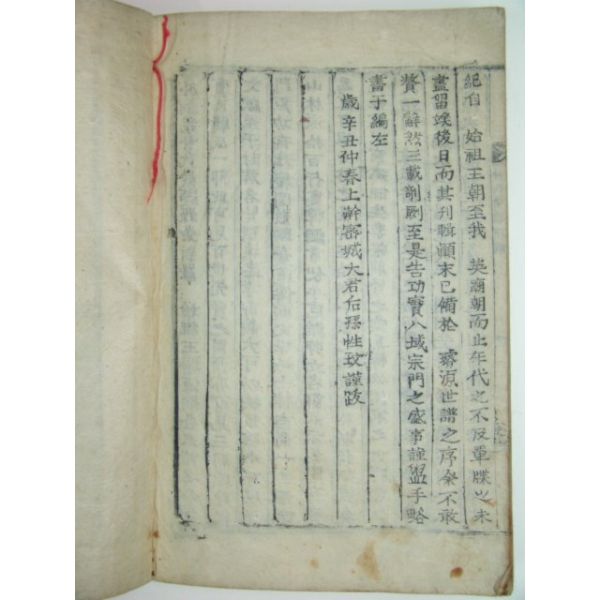 紀自 始祖王朝至我 英廟朝而止年代之不及單牒之未
盡留竢後日而其刊輯顚末已備於 璿源世譜之序余不敢
贅一辭然三載剞劂至是告功實八域宗門之盛事謹盥手略
書于編左
歲辛丑仲春上澣密城大君后孫性玟謹跋